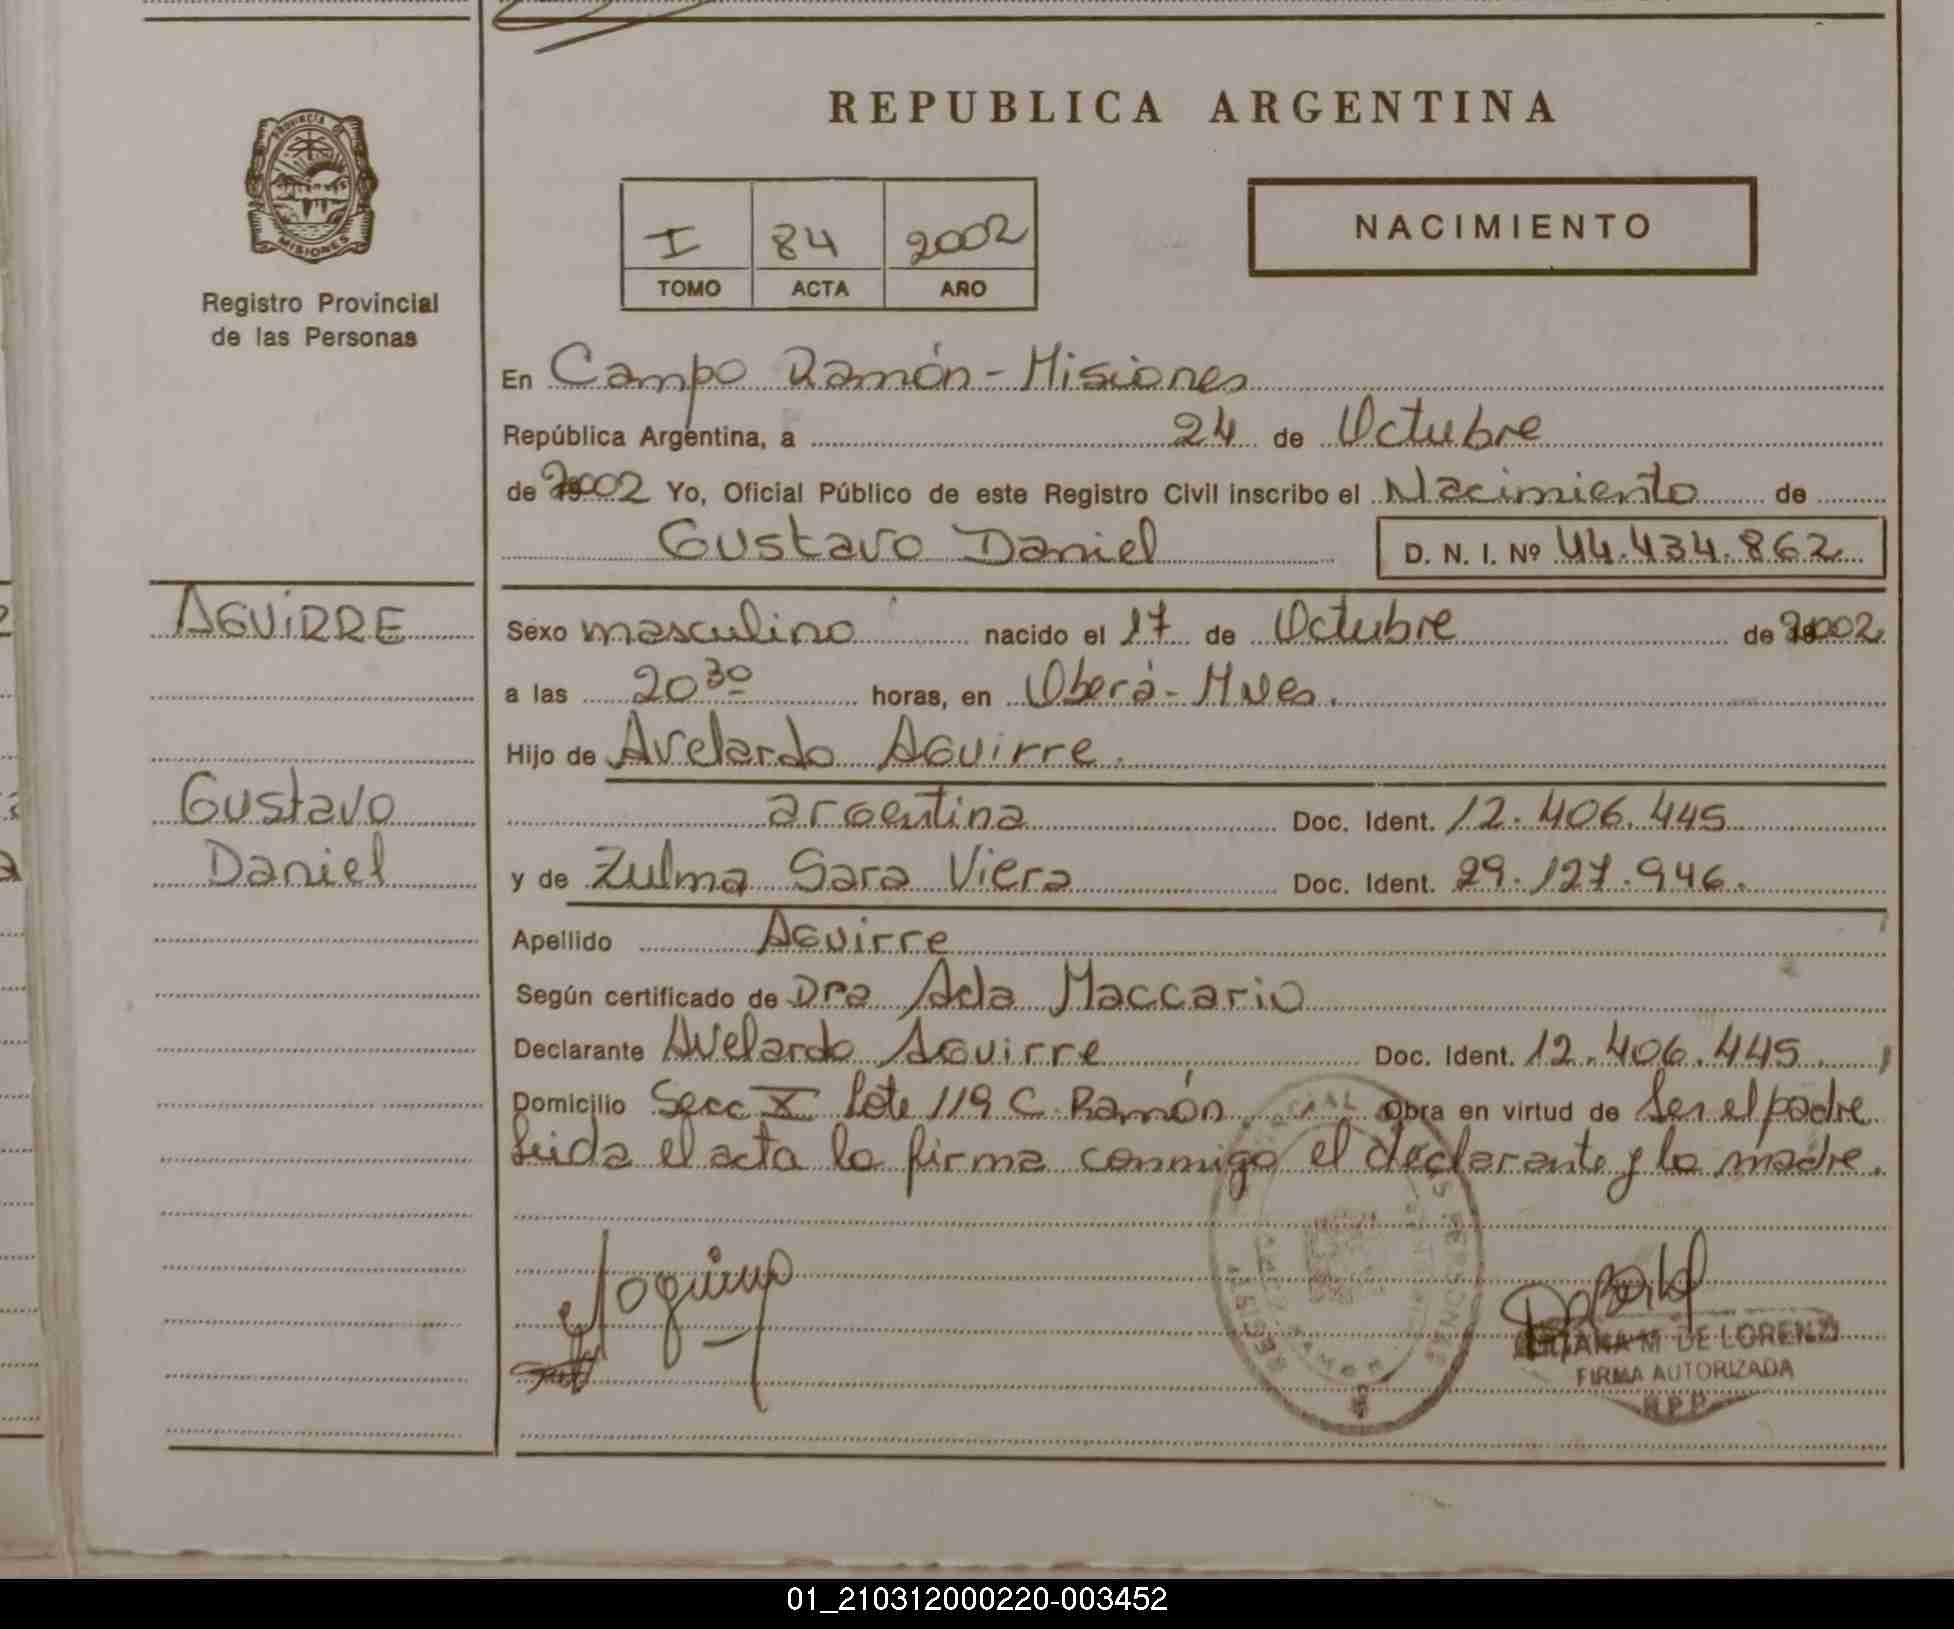 REPUBLICA ARGENTINA
PROVINCIA DE
MISIONES
Registro Provincial
de las Personas
I 84 2002
TOMO ACTA AÑO
NACIMIENTO
En Campo Ramón - Misiones
República Argentina, a 24 de Octubre
de 2002 Yo, Oficial Público de este Registro Civil inscribo el Nacimiento de
Gustavo Daniel D. N. I. Nº 44.434.862
AGUIRRE
Sexo masculino nacido el 17 de Octubre de 2002
a las 20 30 horas, en Oberá - Mnes.
Hijo de Avelardo Aguirre.
Gustavo
argentina Doc. Ident. 12.406.445
Daniel
y de Zulma Sara Viera Doc. Ident. 29.127.946.
Apellido Aguirre
Según certificado de Dra Ada Maccario
Declarante Avelardo Aguirre Doc. Ident. 12.406.445
Domicilio Secc X Lote 119 C. Ramón Obra en virtud de Ser el padre
Leida el acta la firma conmigo el declarante y la madre.
M DE LORENZI
FIRMA AUTORIZADA
R.P.P.
MISIONES
01_210312000220-003452